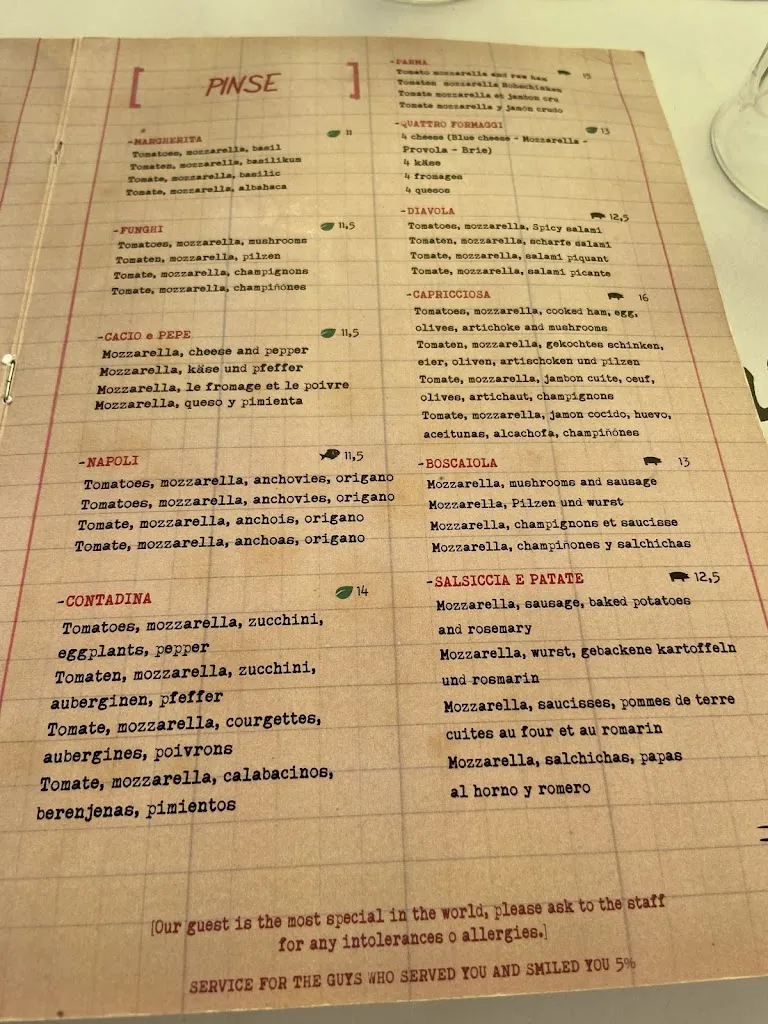 [ PINSE ]
-MARGHERITA 11
Tomatoes, mozzarella, basil
Tomaten, mozzarella, basilikum
Tomate, mozzarella, basilic
Tomate, mozzarella, albahaca
-FUNGHI 11,5
Tomatoes, mozzarella, mushrooms
Tomaten, mozzarella, pilzen
Tomate, mozzarella, champignons
Tomate, mozzarella, champiñones
-CACIO e PEPE 11,5
Mozzarella, cheese and pepper
Mozzarella, käse und pfeffer
Mozzarella, le fromage et le poivre
Mozzarella, queso y pimienta
-NAPOLI 11,5
Tomatoes, mozzarella, anchovies, origano
Tomatoes, mozzarella, anchovies, origano
Tomate, mozzarella, anchois, origano
Tomate, mozzarella, anchoas, origano
-CONTADINA 14
Tomatoes, mozzarella, zucchini,
eggplants, pepper
Tomaten, mozzarella, zucchini,
auberginen, pfeffer
Tomate, mozzarella, courgettes,
aubergines, poivrons
Tomate, mozzarella, calabacinos,
berenjenas, pimientos
-PARMA 15
Tomato mozzarella and raw ham
Tomaten mozzarella Rohschinken
Tomate mozzarella et jambon cru
Tomate mozzarella y jamón crudo
-QUATTRO FORMAGGI 13
4 cheese (Blue cheese - Mozzarella -
Provola - Brie)
4 käse
4 fromages
4 quesos
-DIAVOLA 12,5
Tomatoes, mozzarella, Spicy salami
Tomaten, mozzarella, scharfe salami
Tomate, mozzarella, salami piquant
Tomate, mozzarella, salami picante
-CAPRICCIOSA 16
Tomatoes, mozzarella, cooked ham, egg,
olives, artichoke and mushrooms
Tomaten, mozzarella, gekochtes schinken,
eier, oliven, artischoken und pilzen
Tomate, mozzarella, jambon cuite, oeuf,
olives, artichaut, champignons
Tomate, mozzarella, jamon cocido, huevo,
aceitunas, alcachofa, champiñónes
-BOSCAIOLA 13
Mozzarella, mushrooms and sausage
Mozzarella, Pilzen und wurst
Mozzarella, champignons et saucisse
Mozzarella, champiñones y salchichas
-SALSICCIA E PATATE 12,5
Mozzarella, sausage, baked potatoes
and rosemary
Mozzarella, wurst, gebackene kartoffeln
und rosmarin
Mozzarella, saucisses, pommes de terre
cuites au four et au romarin
Mozzarella, salchichas, papas
al horno y romero
[Our guest is the most special in the world, please ask to the staff
for any intolerances o allergies.]
SERVICE FOR THE GUYS WHO SERVED YOU AND SMILED YOU 5%